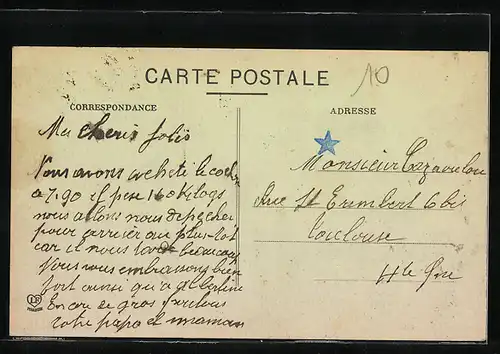 10
CARTE POSTALE
CORRESPONDANCE
ADRESSE
Mes cheris jolis
Nous avons acheté le coch
a 7.90 il pese 160 Kilogs
nous allons nous depecher
pour arriver au plus tot
car il nous tarde beaucoup
Nous vous embrassons bien
fort ainsi qu'a
Encore de gros
votre papa et maman
Monsieur Cazaoulou
Rue St Erembert 6 bis
Toulouse
Hte Gne